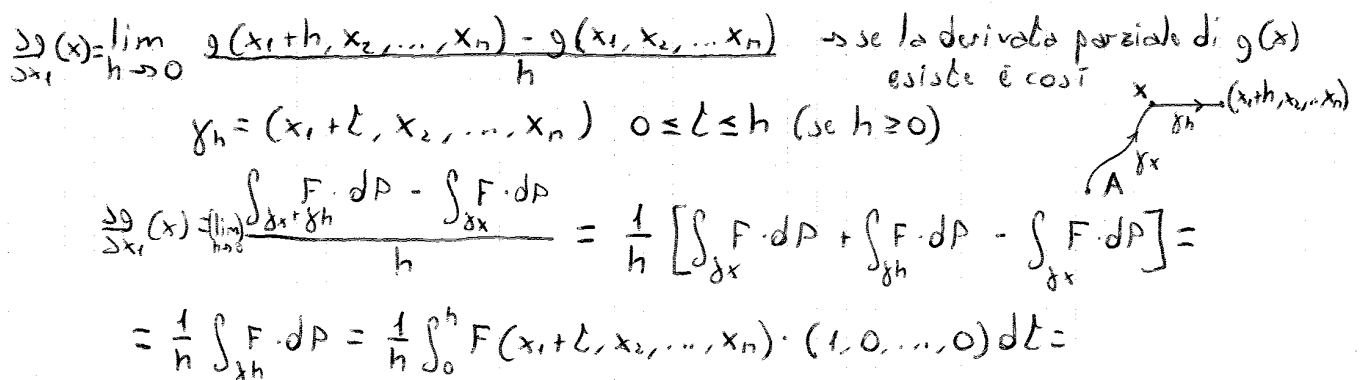 ∂g/∂x₁ (x) = lim h→0 g(x₁+h, x₂, ..., xₙ) - g(x₁, x₂, ... xₙ) / h → se la derivata parziale di g(x)
esiste è così
γh = (x₁+t, x₂, ..., xₙ) 0≤t≤h (se h≥0)
x γh (x₁+h, x₂, ..xₙ)
γx
A
∂g/∂x₁ (x) = (lim h→0) ∫γx+γh F·dP - ∫γx F·dP / h = 1/h [∫γx F·dP + ∫γh F·dP - ∫γx F·dP] =
= 1/h ∫γh F·dP = 1/h ∫₀ʰ F(x₁+t, x₂, ..., xₙ)·(1,0,...,0)dt =